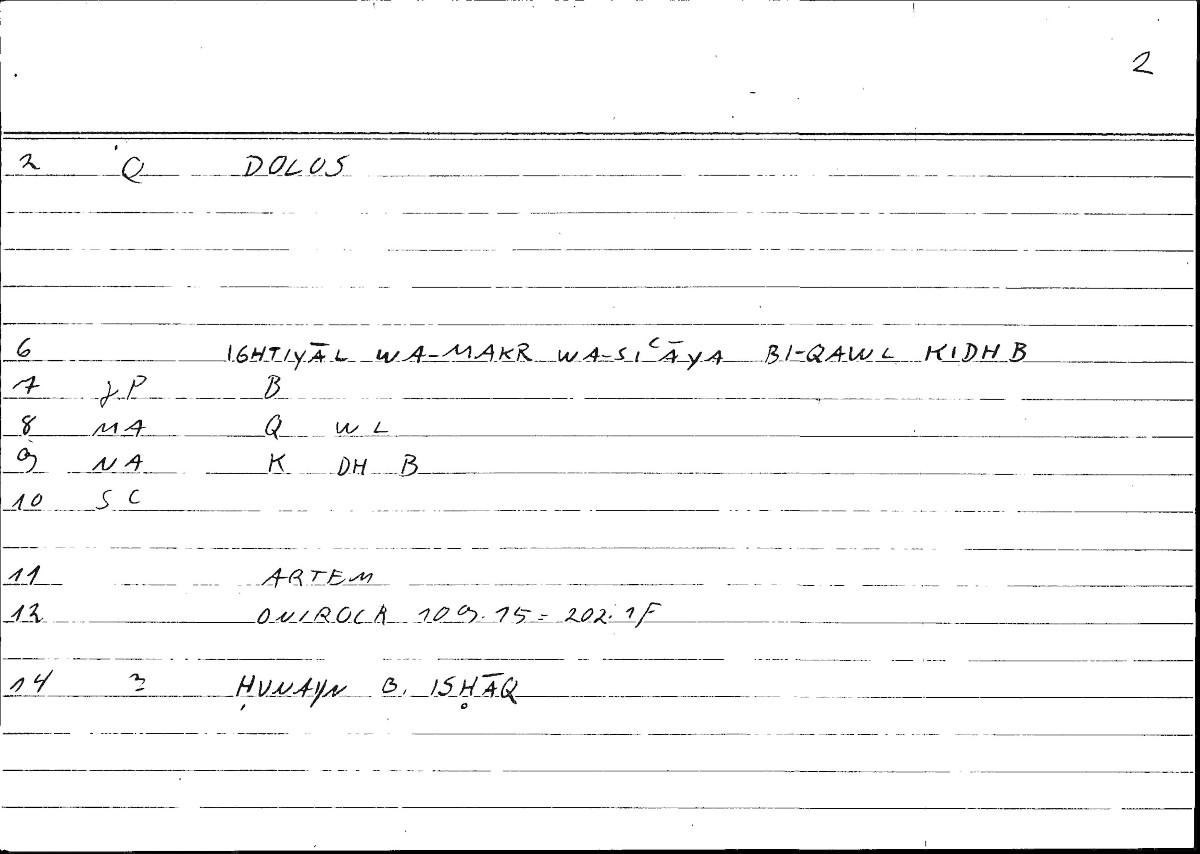 2
2 Q DOLUS
6 IGHTIYĀL WA-MAKR WA-SIᶜĀYA BI-QAWL KIDHB
7 JP B
8 MA Q WL
9 NA K DH B
10 SC
11 ARTEM
12 ONIROCR 109.15 = 202.1F
14 3 ḤUNAYN B. ISḤĀQ